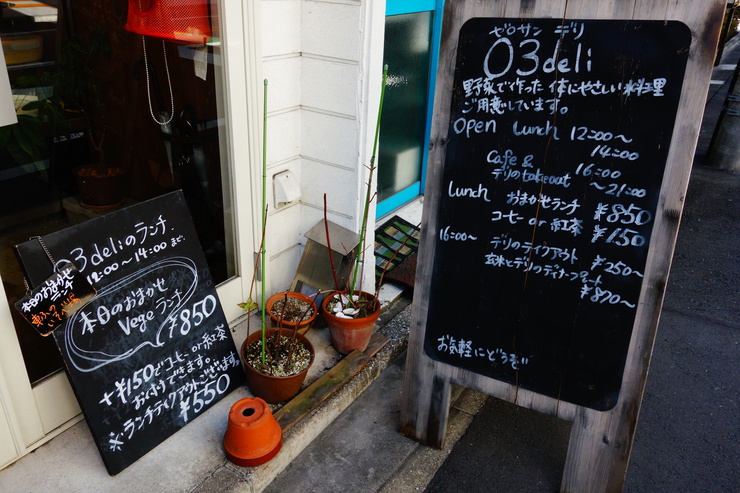 ゼロサン デリ
03deli
野菜で作った体にやさしい料理
ご用意しています。
Open Lunch 12:00～
14:00
Cafe &
デリのtakeout 16:00
～21:00
Lunch おまかせランチ ¥850
コーヒー or 紅茶 ¥150
16:00～ デリのテイクアウト ¥250～
玄米とデリのディナープレート
¥870～
お気軽にどうぞ
03deliのランチ
12:00～14:00 まで。
本日のおまかせ
本日のおまかせ
Vegeランチ
¥850
+¥150でコーヒー or 紅茶
おつけできます。
※ランチテイクアウトございます。
¥550